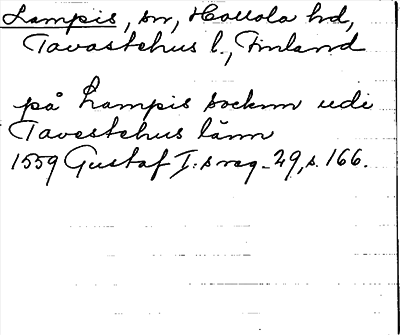 Lampis, sn, Hollola hd,
Tavastehus l., Finland
på Lampis socknn udi
Tavestehus länn
1559 Gustaf I:s reg. 29, s. 166.